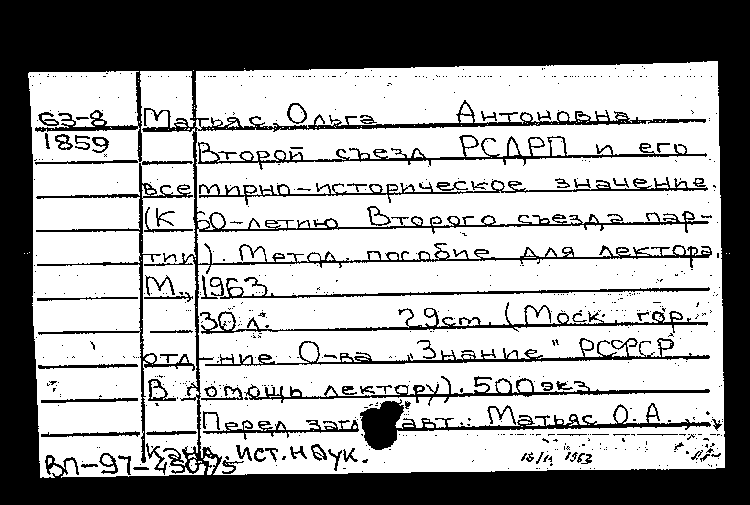 63-8 Матьяс, Ольга Антоновна.
1859
Второй съезд РСДРП и его
всемирно-историческое значение.
(К 60-летию Второго съезда пар-
тии). Метод. пособие для лектора.
М., 1963.
30 л. 29cm. (Моск. гор.
отд-ние О-ва "Знание" РСФСР.
В помощь лектору). 500 экз.
Перед загл. авт.: Матьяс О.А.,
канд. ист. наук.
ВП-97-
1963